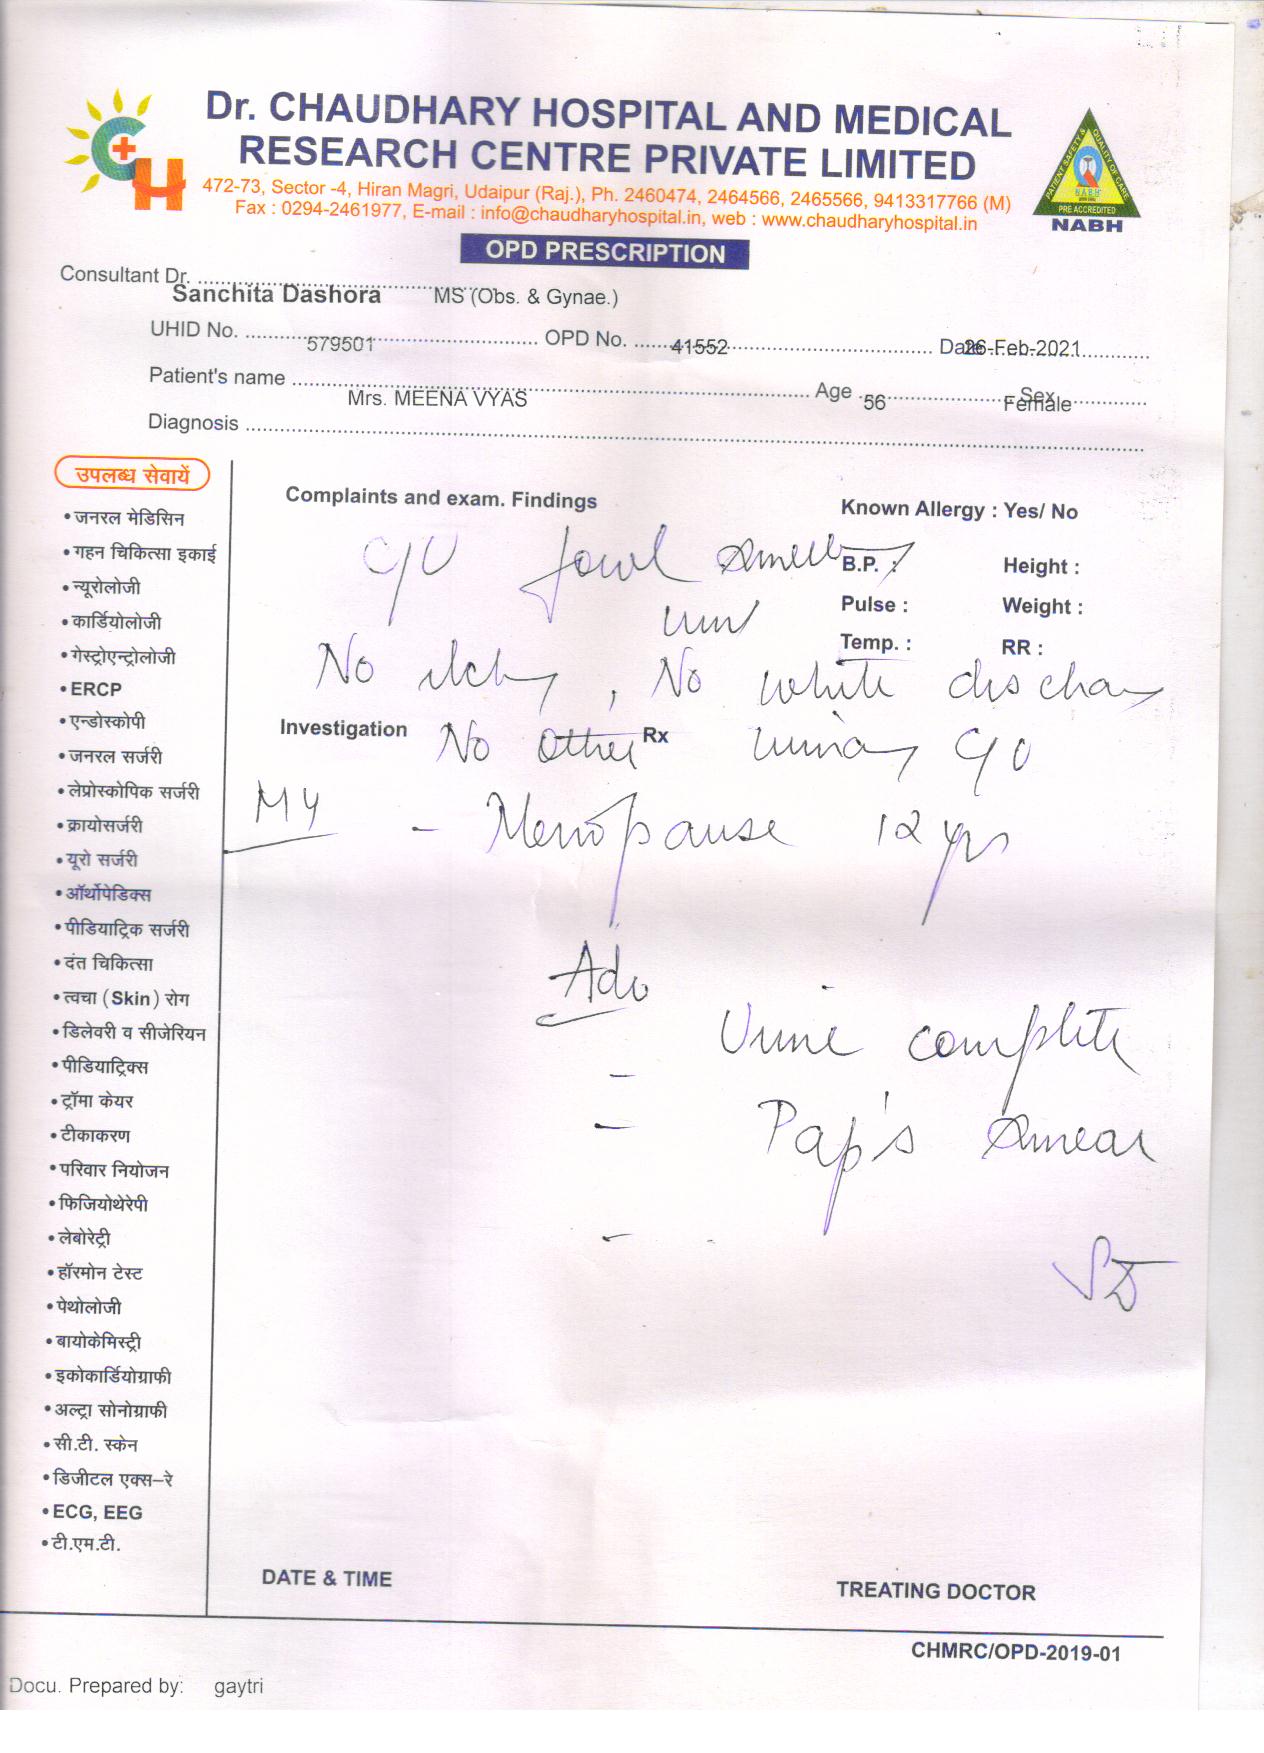 Dr. CHAUDHARY HOSPITAL AND MEDICAL
RESEARCH CENTRE PRIVATE LIMITED
472-73, Sector -4, Hiran Magri, Udaipur (Raj.), Ph. 2460474, 2464566, 2465566, 9413317766 (M)
Fax : 0294-2461977, E-mail : info@chaudharyhospital.in, web : www.chaudharyhospital.in
PATIENT SAFETY & QUALITY OF CARE
NABH
PRE ACCREDITED
NABH
OPD PRESCRIPTION
Consultant Dr. Sanchita Dashora MS (Obs. & Gynae.)
UHID No. 579501 OPD No. 41552 Date 26-Feb-2021
Patient's name Mrs. MEENA VYAS Age 56 Sex Female
Diagnosis
उपलब्ध सेवायें
•जनरल मेडिसिन
•गहन चिकित्सा इकाई
•न्यूरोलोजी
•कार्डियोलोजी
•गेस्ट्रोएन्ट्रोलोजी
•ERCP
•एन्डोस्कोपी
•जनरल सर्जरी
•लेप्रोस्कोपिक सर्जरी
•क्रायोसर्जरी
•यूरो सर्जरी
•ऑर्थोपेडिक्स
•पीडियाट्रिक सर्जरी
•दंत चिकित्सा
•त्वचा (Skin) रोग
•डिलेवरी व सीजेरियन
•पीडियाट्रिक्स
•ट्रॉमा केयर
•टीकाकरण
•परिवार नियोजन
•फिजियोथेरेपी
•लेबोरेट्री
•हॉरमोन टेस्ट
•पेथोलोजी
•बायोकेमिस्ट्री
•इकोकार्डियोग्राफी
•अल्ट्रा सोनोग्राफी
•सी.टी. स्केन
•डिजीटल एक्स-रे
•ECG, EEG
•टी.एम.टी.
Complaints and exam. Findings
Known Allergy : Yes/ No
B.P. : Height :
Pulse : Weight :
Temp. : RR :
C/O foul smell
No itchy, No white discharge
Investigation Rx
No other urinary C/O
- Menopause 12 yrs
Adv
- Urine complete
- Pap's smear
-
DATE & TIME TREATING DOCTOR
CHMRC/OPD-2019-01
Docu. Prepared by: gaytri